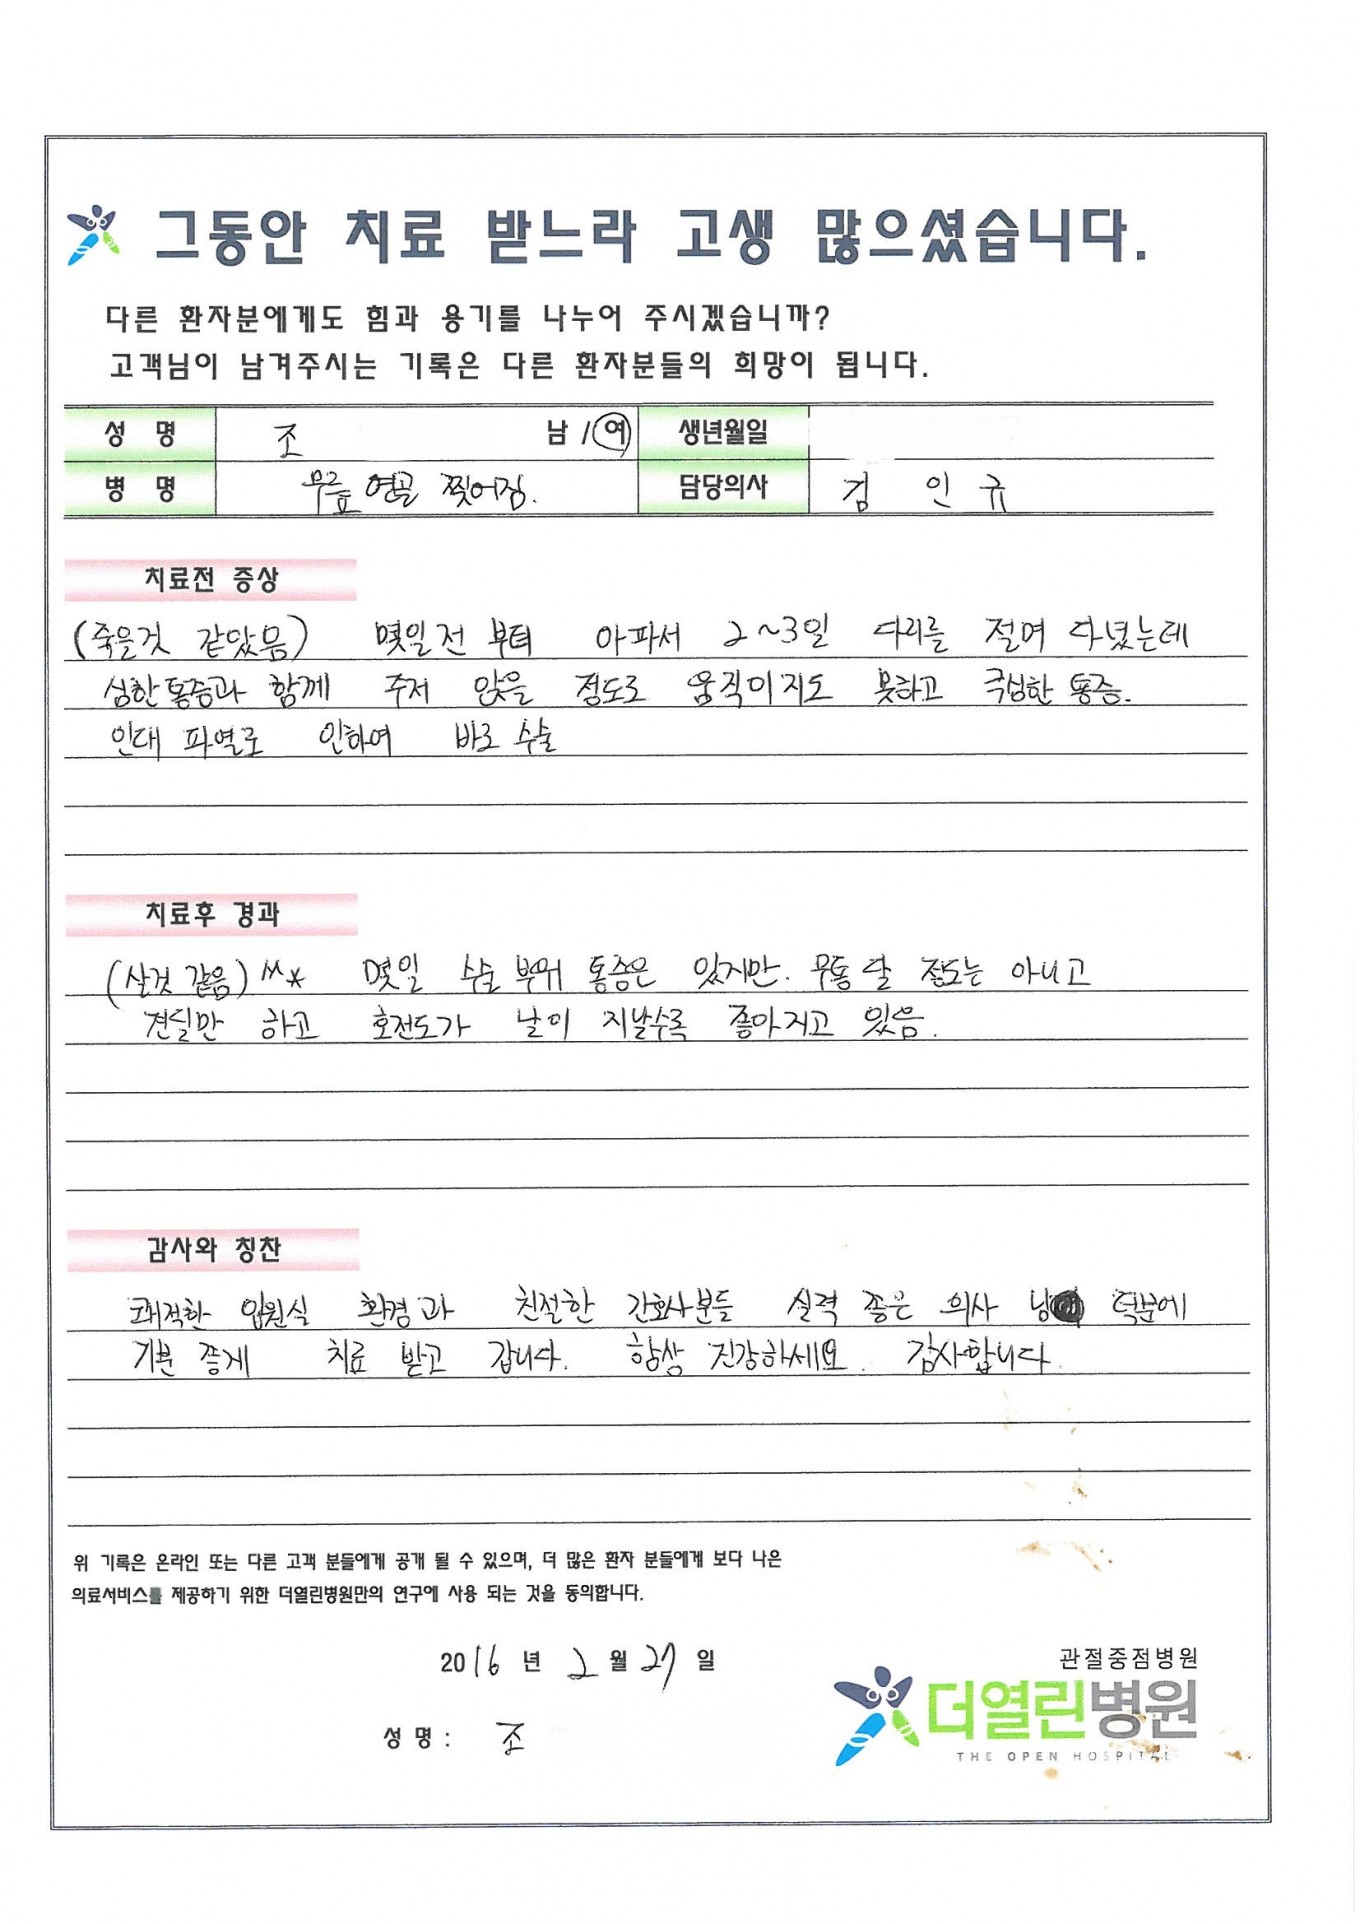 그동안 치료 받느라 고생 많으셨습니다.
다른 환자분에게도 힘과 용기를 나누어 주시겠습니까?
고객님이 남겨주시는 기록은 다른 환자분들의 희망이 됩니다.
성 명 조 남 / 여 생년월일
병 명 무릎 연골 찢어짐. 담당의사 김 인 규
치료전 증상
(죽을것 같았음) 몇일전 부터 아파서 2~3일 다리를 절며 다녔는데
심한통증과 함께 주저 앉을 정도로 움직이지도 못하고 극심한 통증.
인대 파열로 인하여 바로 수술
치료후 경과
(살것 같음) ^^* 몇일 수술 부위 통증은 있지만. 무통 달 정도는 아니고
견딜만 하고 호전도가 날이 지날수록 좋아지고 있음.
감사와 칭찬
쾌적한 입원실 환경과 친절한 간호사분들 실력 좋은 의사 덕분에
기분 좋게 치료 받고 갑니다. 항상 건강하세요. 감사합니다.
위 기록은 온라인 또는 다른 고객 분들에게 공개 될 수 있으며, 더 많은 환자 분들에게 보다 나은
의료서비스를 제공하기 위한 더열린병원만의 연구에 사용 되는 것을 동의합니다.
2016 년 2 월 27 일
성 명 : 조
관절중점병원
더열린병원
THE OPEN HOSPITAL